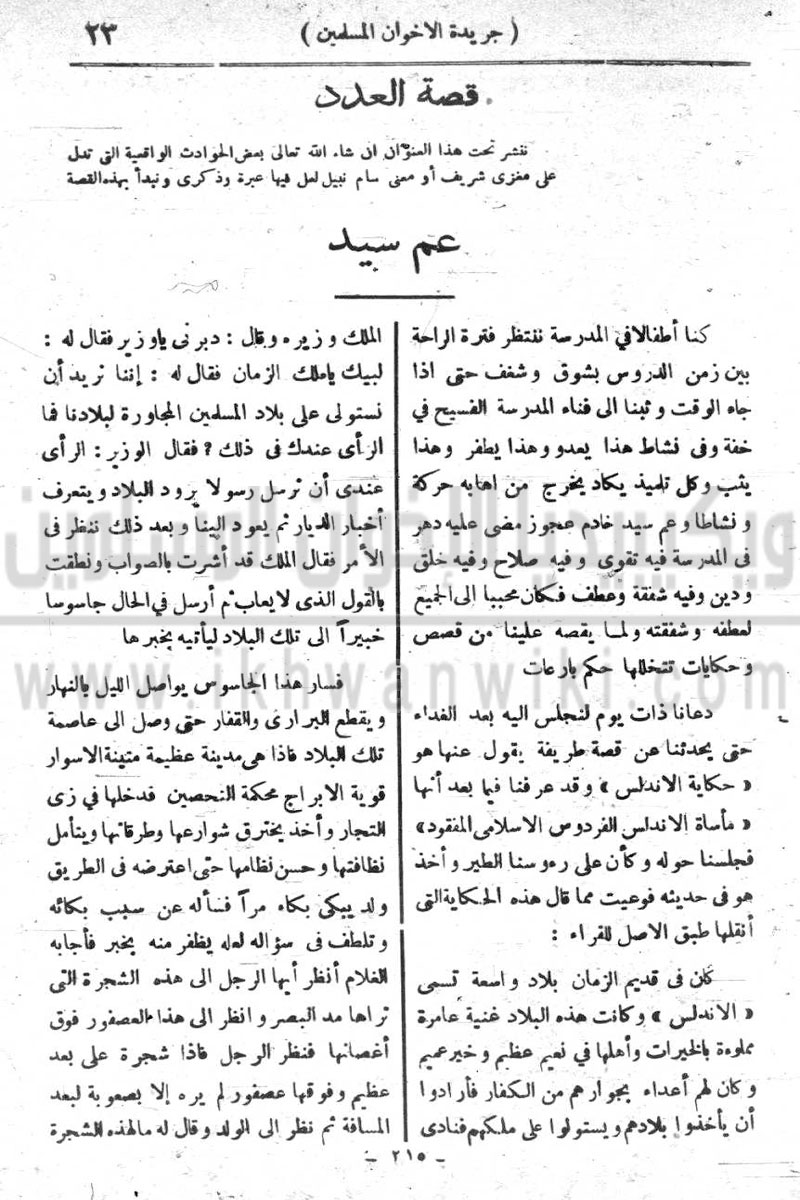 ( جريدة الاخوان المسلمين )
٢٣
قصة العدد
ننشر تحت هذا العنوان ان شاء الله تعالى بعض الحوادث الواقعية التى تدل
على مغزى شريف أو معنى سام نبيل لعل فيها عبرة وذكرى ونبدأ بهذه القصة
عم سيد
كنا أطفالا في المدرسة ننتظر فترة الراحة
بين زمن الدروس بشوق وشغف حتى اذا
جاء الوقت وثبنا الى فناء المدرسة الفسيح في
خفة وفى نشاط هذا يعدو وهذا يطفر وهذا
يثب وكل تلميذ يكاد يخرج من اهابه حركة
ونشاطا وعم سيد خادم عجوز مضى عليه دهر
فى المدرسة فيه تقوى وفيه صلاح وفيه خلق
ودين وفيه شفقة وعطف فكان محببا الى الجميع
لعطفه وشفقته ولما يقصه علينا من قصص
وحكايات تتخللها حكم بارعات
دعانا ذات يوم لنجلس اليه بعد الغداء
حتى يحدثنا عن قصة طريفة يقول عنها هو
« حكاية الاندلس » وقد عرفنا فيما بعد أنها
« مأساة الاندلس الفردوس الاسلامى المفقود»
فجلسنا حوله وكأن على رءوسنا الطير وأخذ
هو فى حديثه فوعيت مما قال هذه الحكاية التى
أنقلها طبق الاصل للقراء :
كان فى قديم الزمان بلاد واسعة تسمى
« الاندلس » وكانت هذه البلاد غنية عامرة
مملوءة بالخيرات وأهلها في نعيم عظيم وخير عميم
وكان لهم أعداء بجوارهم من الكفار فأرادوا
أن يأخذوا بلادهم ويستولوا على ملكهم فنادى
الملك وزيره وقال : دبرنى ياوزير فقال له :
لبيك ياملك الزمان فقال له : إننا نريد أن
نستولى على بلاد المسلمين المجاورة لبلادنا فما
الرأى عندك فى ذلك ? فقال الوزير : الرأى
عندى أن ترسل رسولا يرود البلاد ويتعرف
أخبار الديار ثم يعود إلينا وبعد ذلك ننظر فى
الأمر فقال الملك قد أشرت بالصواب ونطقت
بالقول الذى لا يعاب ثم أرسل في الحال جاسوسا
خبيراً الى تلك البلاد ليأتيه بخبرها
فسار هذا الجاسوس يواصل الليل بالنهار
ويقطع البرارى والقفار حتى وصل الى عاصمة
تلك البلاد فاذا هى مدينة عظيمة متينة الاسوار
قوية الابراج محكمة التحصين فدخلها في زى
التجار وأخذ يخترق شوارعها وطرقاتها ويتأمل
نظافتها وحسن نظامها حتى اعترضه فى الطريق
ولد يبكى بكاء مراً فسأله عن سبب بكائه
وتلطف فى سؤاله لعله يظفر منه بخبر فأجابه
الغلام أنظر أيها الرجل الى هذه الشجرة التى
تراها مد البصر وانظر الى هذا العصفور فوق
أغصانها فنظر الرجل فاذا شجرة على بعد
عظيم وفوقها عصفور لم يره إلا بصعوبة لبعد
المسافة ثم نظر الى الولد وقال له ما لهذه الشجرة
- ٢١٥ -
ويكيبيديا الإخوان المسلمين
www.ikhwanwiki.com